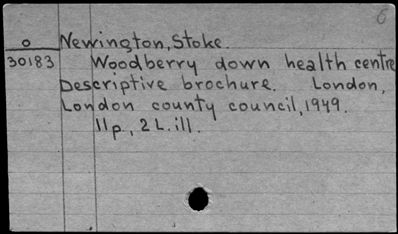 6
o Newington, Stoke.
30183 Woodberry down health centre
Descriptive brochure. London,
London county council, 1949.
11p., 2 L. ill.